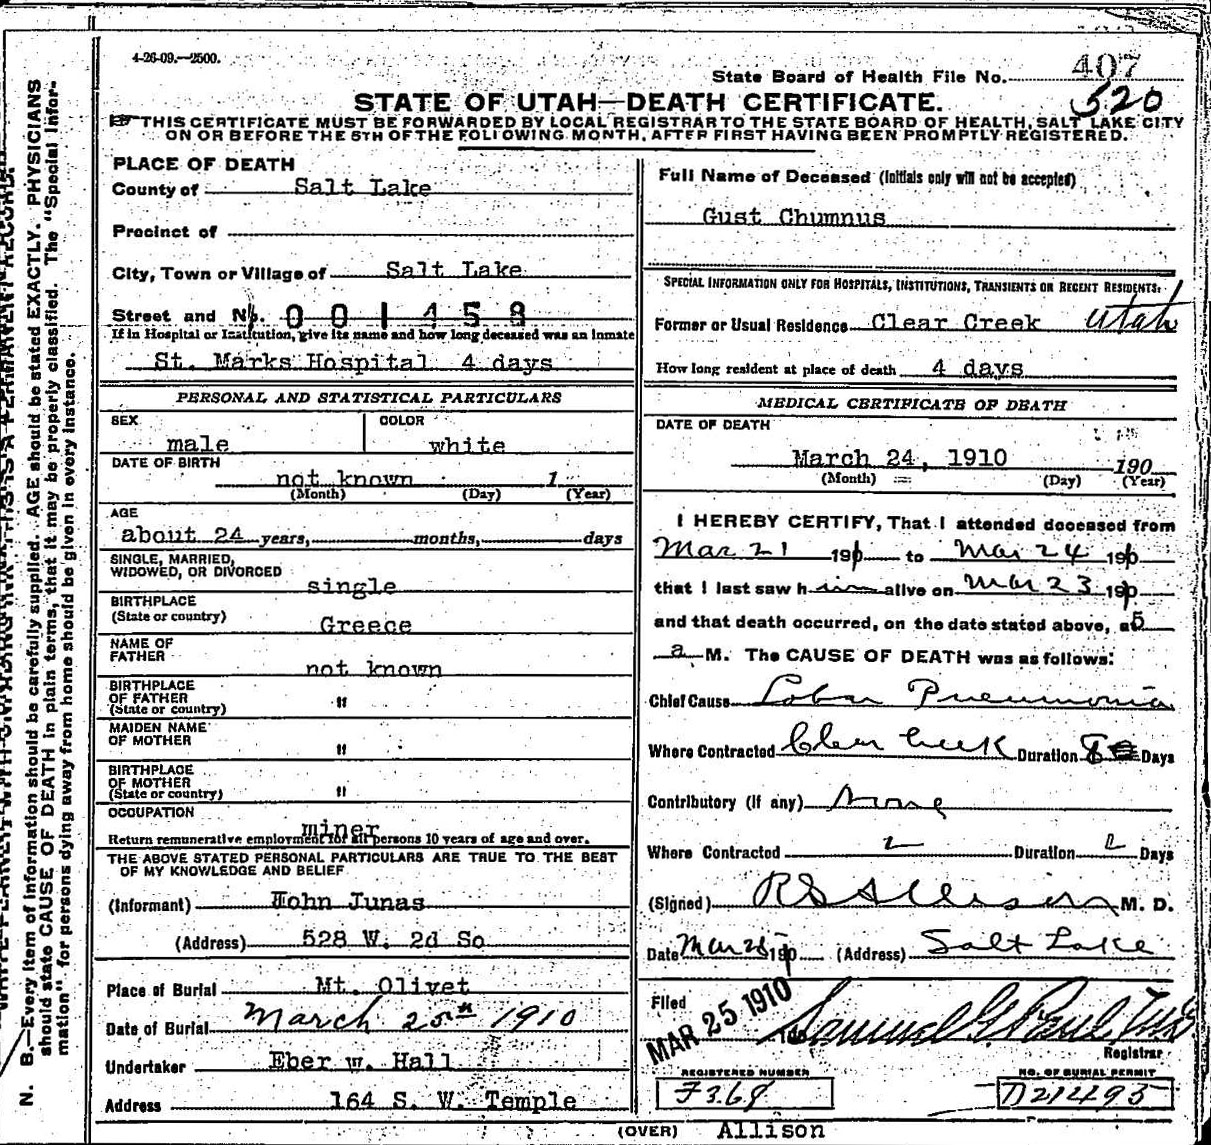 4-26-09.—2500.
State Board of Health File No. 407
520
STATE OF UTAH—DEATH CERTIFICATE.
THIS CERTIFICATE MUST BE FORWARDED BY LOCAL REGISTRAR TO THE STATE BOARD OF HEALTH, SALT LAKE CITY
ON OR BEFORE THE 5TH OF THE FOLLOWING MONTH, AFTER FIRST HAVING BEEN PROMPTLY REGISTERED.
PLACE OF DEATH
County of Salt Lake
Precinct of
City, Town or Village of Salt Lake
Street and No. 001458
If in Hospital or Institution, give its name and how long deceased was an inmate
St. Marks Hospital 4 days
PERSONAL AND STATISTICAL PARTICULARS
SEX COLOR
male white
DATE OF BIRTH
not known 1
(Month) (Day) (Year)
AGE
about 24 years, months, days
SINGLE, MARRIED,
WIDOWED, OR DIVORCED
single
BIRTHPLACE
(State or country)
Greece
NAME OF
FATHER
not known
BIRTHPLACE
OF FATHER
(State or country) "
MAIDEN NAME
OF MOTHER "
BIRTHPLACE
OF MOTHER
(State or country) "
OCCUPATION
miner
Return remunerative employment for all persons 10 years of age and over.
THE ABOVE STATED PERSONAL PARTICULARS ARE TRUE TO THE BEST
OF MY KNOWLEDGE AND BELIEF
(Informant) John Junas
(Address) 528 W. 2d So
Place of Burial Mt. Olivet
Date of Burial March 25th 1910
Undertaker Eber W. Hall
Address 164 S. W. Temple
Full Name of Deceased (Initials only will not be accepted)
Gust Chumnus
SPECIAL INFORMATION ONLY FOR HOSPITALS, INSTITUTIONS, TRANSIENTS OR RECENT RESIDENTS.
Former or Usual Residence Clear Creek Utah
How long resident at place of death 4 days
MEDICAL CERTIFICATE OF DEATH
DATE OF DEATH
March 24, 1910 190
(Month) (Day) (Year)
I HEREBY CERTIFY, That I attended deceased from
Mar 21 190 to Mar 24 190
that I last saw h im alive on Mar 23 190
and that death occurred, on the date stated above, at 5
a M. The CAUSE OF DEATH was as follows:
Chief Cause Lobar Pneumonia
Where Contracted Clear Creek Duration 8 Days
Contributory (if any) None
Where Contracted Duration Days
(Signed) R S Allison M. D.
Date Mar 25 190 (Address) Salt Lake
Filed
MAR 25 1910 Samuel G. Paul
Registrar
REGISTERED NUMBER NO. OF BURIAL PERMIT
F368 D21495
(OVER) Allison
N. B.—Every item of information should be carefully supplied. AGE should be stated EXACTLY. PHYSICIANS
should state CAUSE OF DEATH in plain terms, that it may be properly classified. The "Special Infor-
mation" for persons dying away from home should be given in every instance.